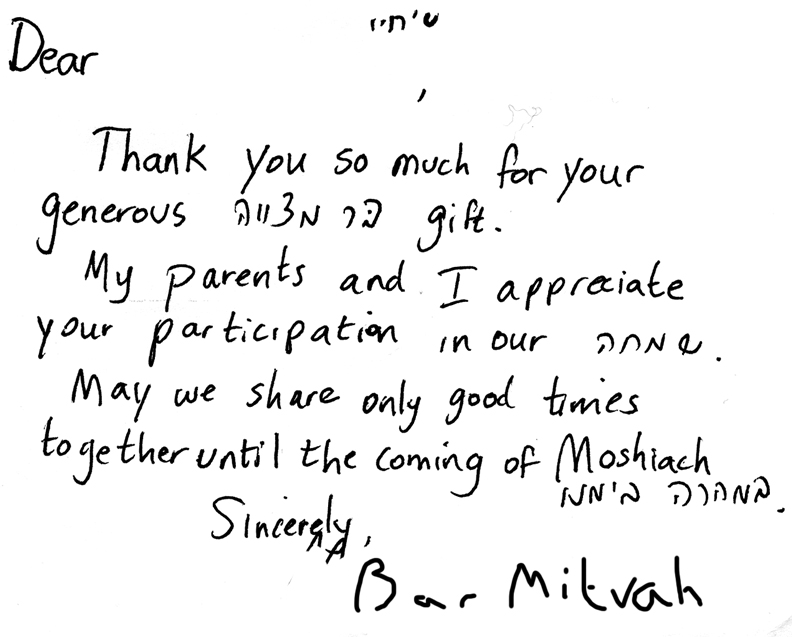 שיחיו
Dear
,
Thank you so much for your
generous בר מצווה gift.
My parents and I appreciate
your participation in our שמחה.
May we share only good times
together until the coming of Moshiach
במהרה בימנו.
Sincerely,
A Bar Mitvah